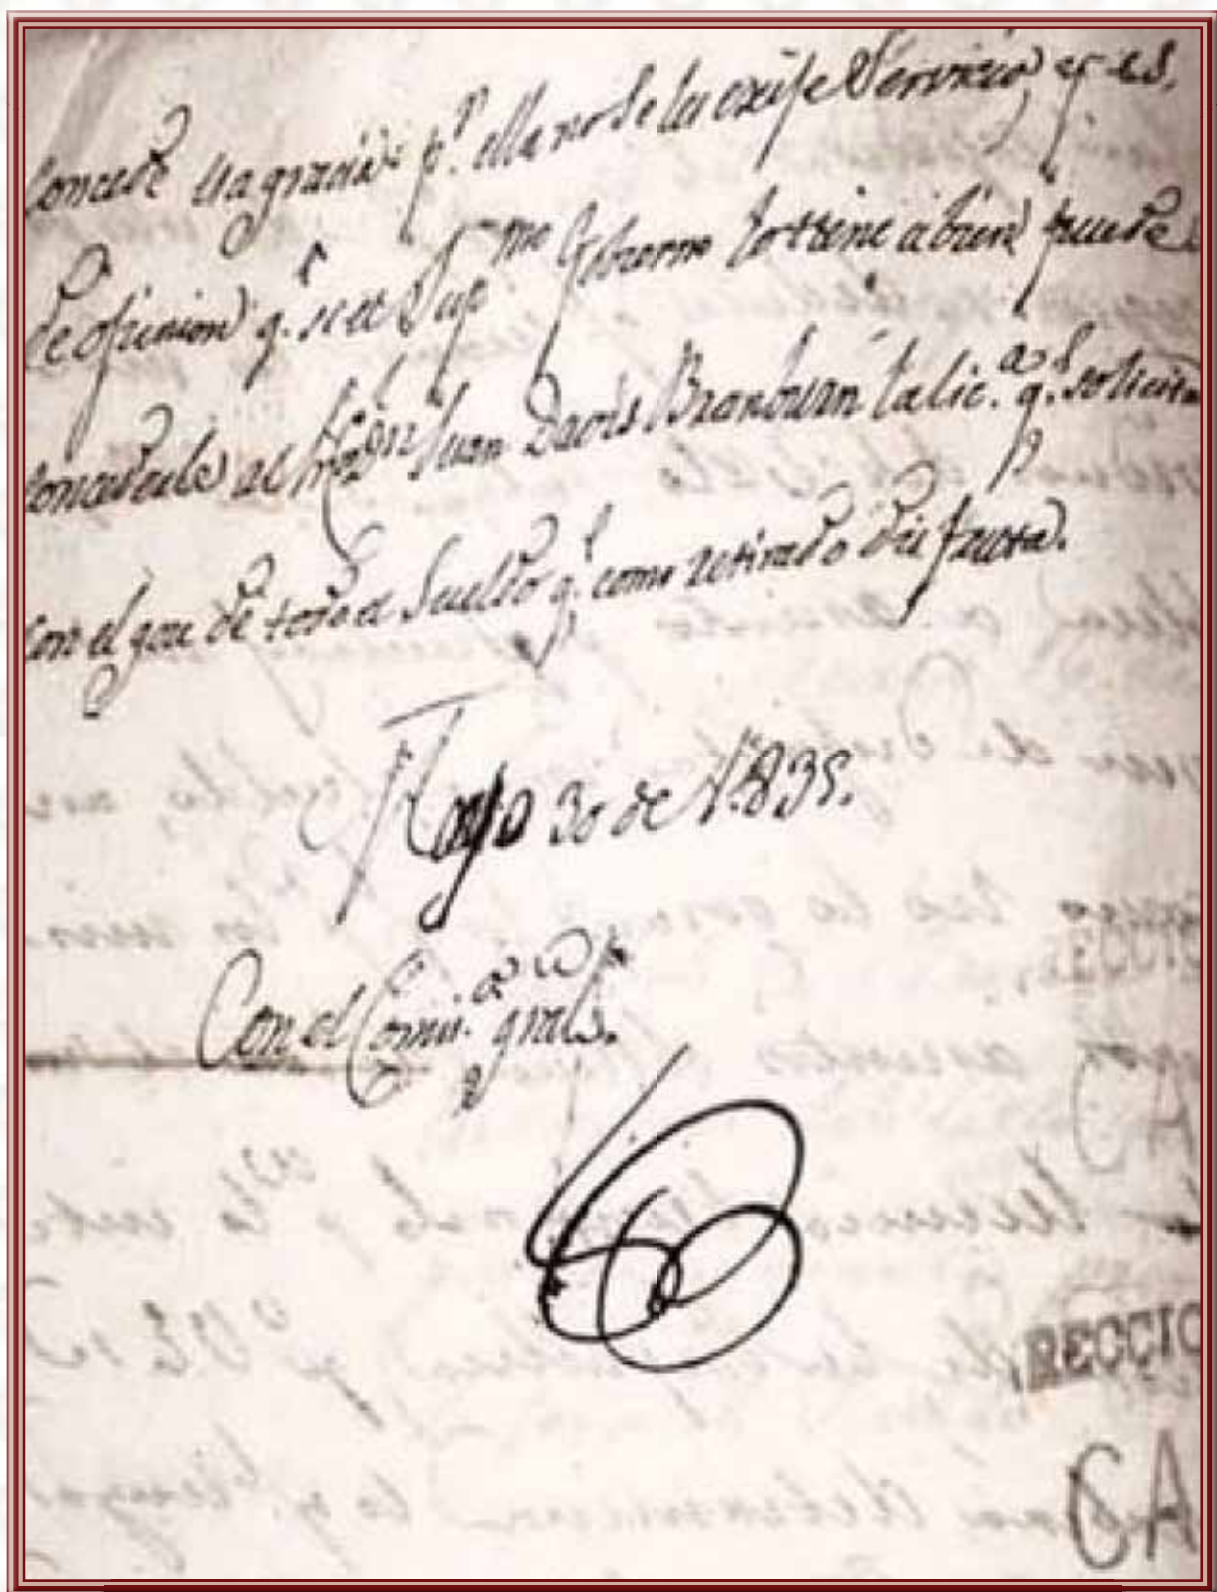 concede esa gracia pr. ella no se la exije Servicio, y es
de opinion q. si el Supmo Gobierno lo tiene a bien puede
concederle al Juan Davis Bradburn la lica. q. solicita
con el goce de todo el sueldo q. como retirado disfruta.
Mayo 30 de 1.835.
Con el Comis. gral.
RECCIO
CA